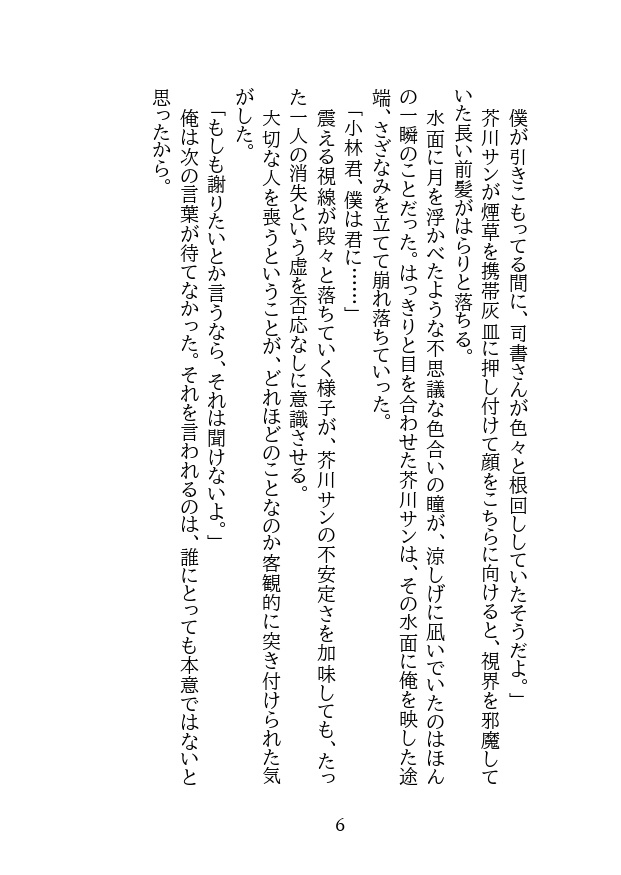 僕が引きこもってる間に、司書さんが色々と根回ししていたそうだよ。」
芥川サンが煙草を携帯灰皿に押し付けて顔をこちらに向けると、視界を邪魔して
いた長い前髪がはらりと落ちる。
水面に月を浮かべたような不思議な色合いの瞳が、涼しげに凪いでいたのはほん
の一瞬のことだった。はっきりと目を合わせた芥川サンは、その水面に俺を映した途
端、さざなみを立てて崩れ落ちていった。
「小林君、僕は君に……」
震える視線が段々と落ちていく様子が、芥川サンの不安定さを加味しても、たっ
た一人の消失という虚を否応なしに意識させる。
大切な人を喪うということが、どれほどのことなのか客観的に突き付けられた気
がした。
「もしも謝りたいとか言うなら、それは聞けないよ。」
俺は次の言葉が待てなかった。それを言われるのは、誰にとっても本意ではないと
思ったから。
6